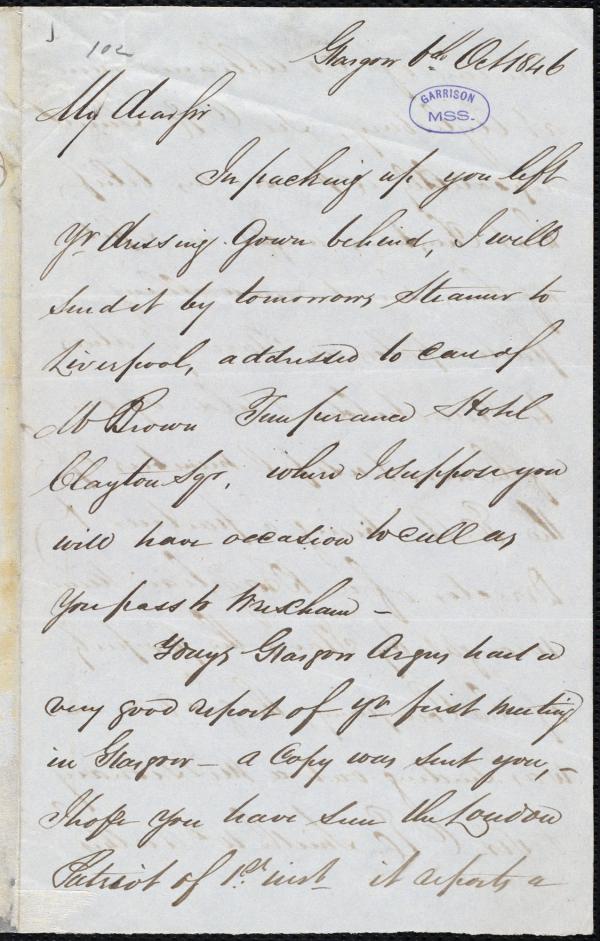 102
Glasgow 6th Oct 1846
GARRISON
MSS.
My dear Sir
In packing up you left
yr dressing Gown behind, I will
send it by tomorrows Steamer to
Liverpool, addressed to care of
Mr Brown Temperance Hotel
Clayton Sqr. where I suppose you
will have occasion to call as
you pass to Wrexham —
Todays Glasgow Argus had a
very good report of yr first meeting
in Glasgow — a copy was sent you, —
I hope you have seen the London
Patriot of 1st inst it reports a